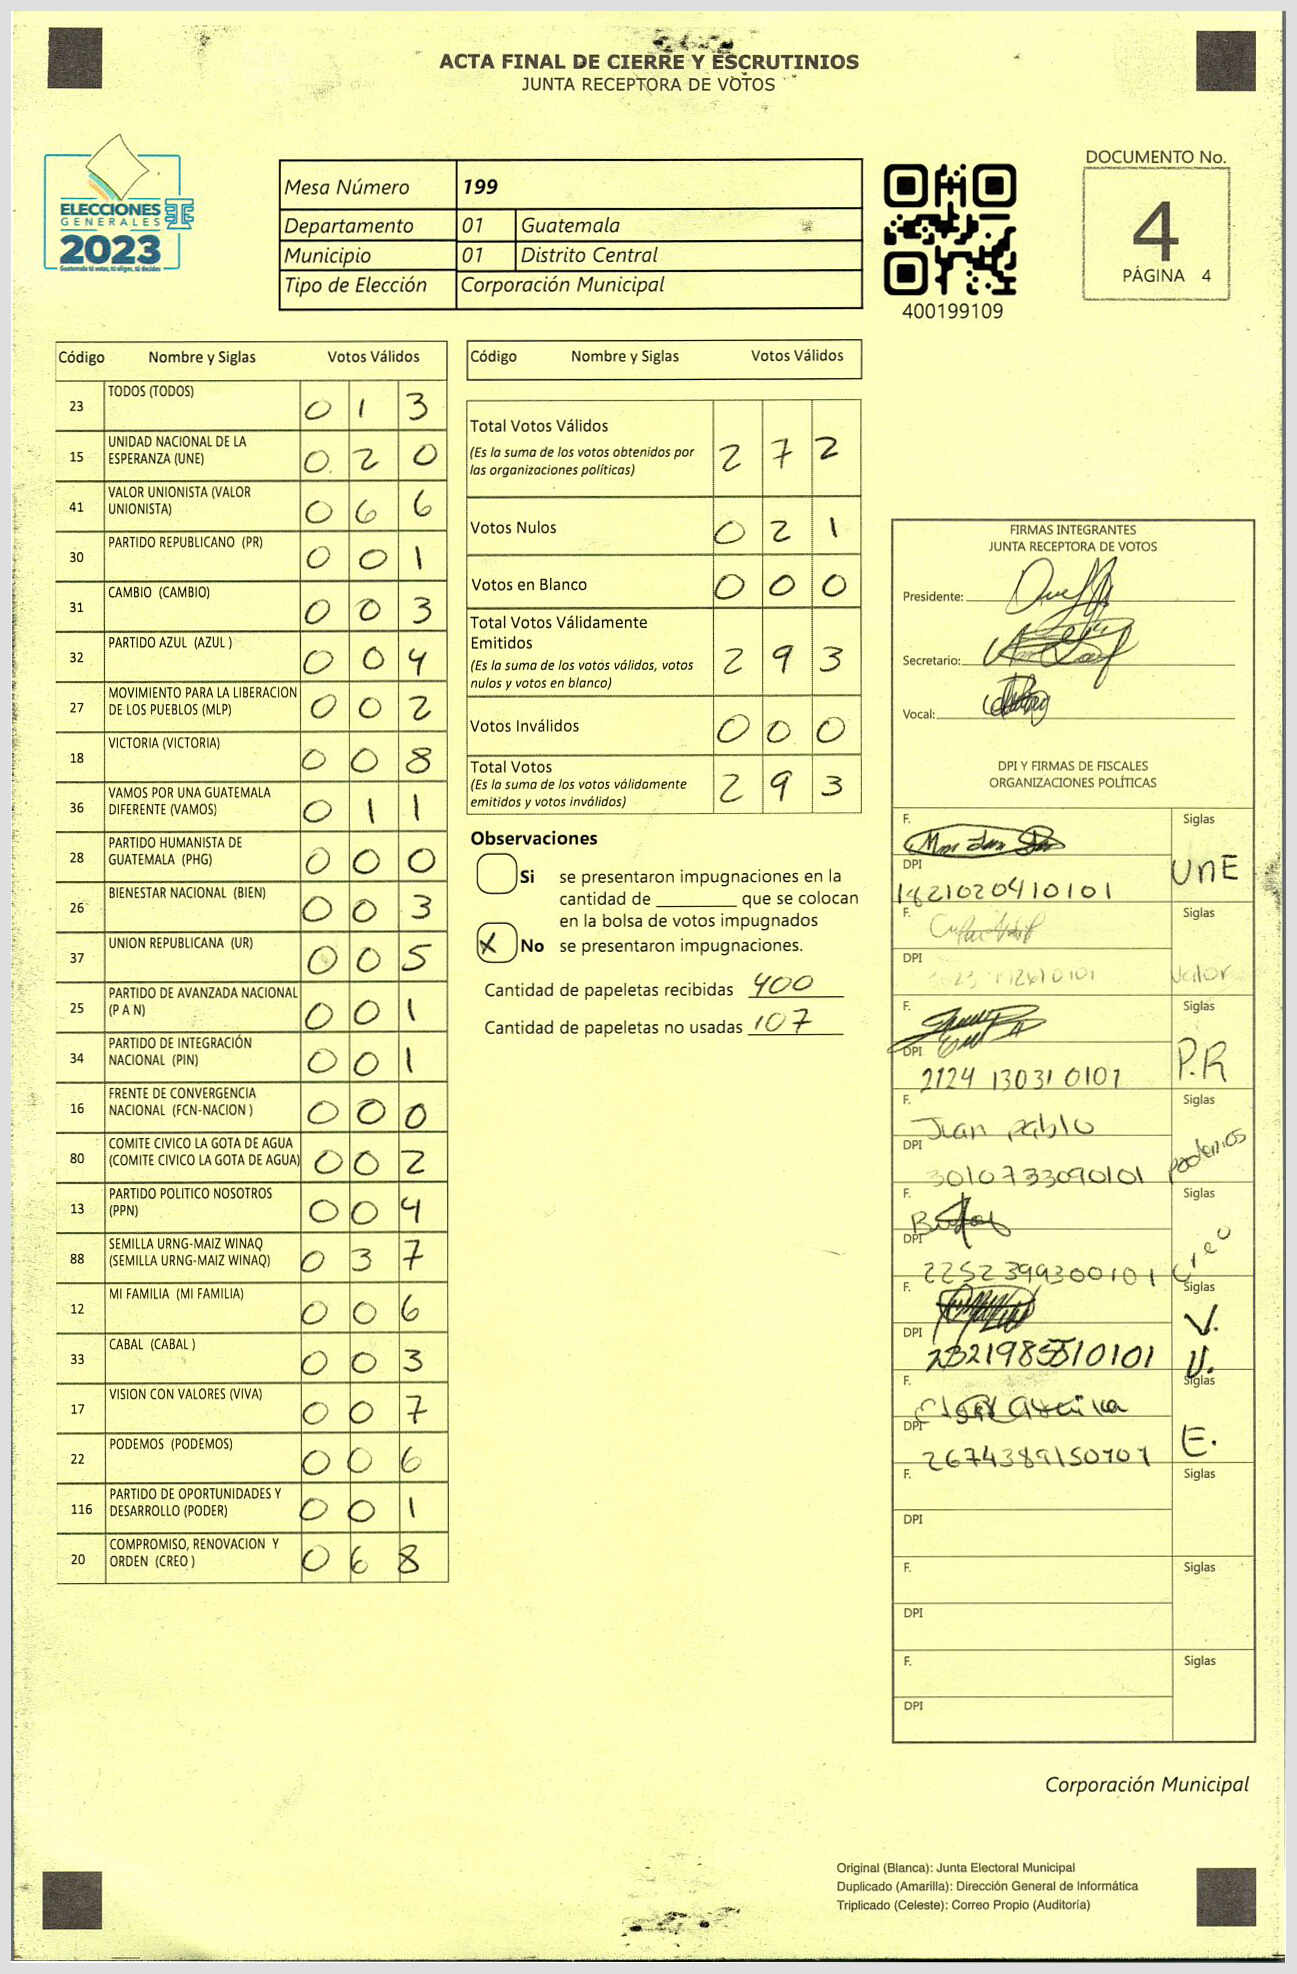 ACTA FINAL DE CIERRE Y ESCRUTINIOS
JUNTA RECEPTORA DE VOTOS
ELECCIONES
GENERALES
2023
Guatemala tú votas, tú eliges, tú decides
Mesa Número 199
Departamento 01 Guatemala
Municipio 01 Distrito Central
Tipo de Elección Corporación Municipal
400199109
DOCUMENTO No.
4
PÁGINA 4
Código Nombre y Siglas Votos Válidos
23 TODOS (TODOS) 0 1 3
15 UNIDAD NACIONAL DE LA
ESPERANZA (UNE) 0 2 0
41 VALOR UNIONISTA (VALOR
UNIONISTA) 0 6 6
30 PARTIDO REPUBLICANO (PR) 0 0 1
31 CAMBIO (CAMBIO) 0 0 3
32 PARTIDO AZUL (AZUL ) 0 0 4
27 MOVIMIENTO PARA LA LIBERACION
DE LOS PUEBLOS (MLP) 0 0 2
18 VICTORIA (VICTORIA) 0 0 8
36 VAMOS POR UNA GUATEMALA
DIFERENTE (VAMOS) 0 1 1
28 PARTIDO HUMANISTA DE
GUATEMALA (PHG) 0 0 0
26 BIENESTAR NACIONAL (BIEN) 0 0 3
37 UNION REPUBLICANA (UR) 0 0 5
25 PARTIDO DE AVANZADA NACIONAL
(P A N) 0 0 1
34 PARTIDO DE INTEGRACIÓN
NACIONAL (PIN) 0 0 1
16 FRENTE DE CONVERGENCIA
NACIONAL (FCN-NACION ) 0 0 0
80 COMITE CIVICO LA GOTA DE AGUA
(COMITE CIVICO LA GOTA DE AGUA) 0 0 2
13 PARTIDO POLITICO NOSOTROS
(PPN) 0 0 4
88 SEMILLA URNG-MAIZ WINAQ
(SEMILLA URNG-MAIZ WINAQ) 0 3 7
12 MI FAMILIA (MI FAMILIA) 0 0 6
33 CABAL (CABAL ) 0 0 3
17 VISION CON VALORES (VIVA) 0 0 7
22 PODEMOS (PODEMOS) 0 0 6
116 PARTIDO DE OPORTUNIDADES Y
DESARROLLO (PODER) 0 0 1
20 COMPROMISO, RENOVACION Y
ORDEN (CREO ) 0 6 8
Código Nombre y Siglas Votos Válidos
Total Votos Válidos
(Es la suma de los votos obtenidos por
las organizaciones políticas) 2 7 2
Votos Nulos 0 2 1
Votos en Blanco 0 0 0
Total Votos Válidamente
Emitidos
(Es la suma de los votos válidos, votos
nulos y votos en blanco) 2 9 3
Votos Inválidos 0 0 0
Total Votos
(Es la suma de los votos válidamente
emitidos y votos inválidos) 2 9 3
Observaciones
Si se presentaron impugnaciones en la
cantidad de ________ que se colocan
en la bolsa de votos impugnados
X No se presentaron impugnaciones.
Cantidad de papeletas recibidas 400
Cantidad de papeletas no usadas 107
FIRMAS INTEGRANTES
JUNTA RECEPTORA DE VOTOS
Presidente:
Secretario:
Vocal:
DPI Y FIRMAS DE FISCALES
ORGANIZACIONES POLÍTICAS
F. Siglas
DPI UnE
1821020410101
F. Siglas
DPI Valor
F. Siglas
DPI P.R
2124 13031 0101
F. Juan pablo Siglas
DPI podemos
3010733090101
F. Siglas
DPI Creo
2252399300101
F. Siglas
DPI V.
U.
F. Siglas
DPI E.
F. Siglas
DPI
F. Siglas
DPI
F. Siglas
DPI
Corporación Municipal
Original (Blanca): Junta Electoral Municipal
Duplicado (Amarilla): Dirección General de Informática
Triplicado (Celeste): Correo Propio (Auditoría)